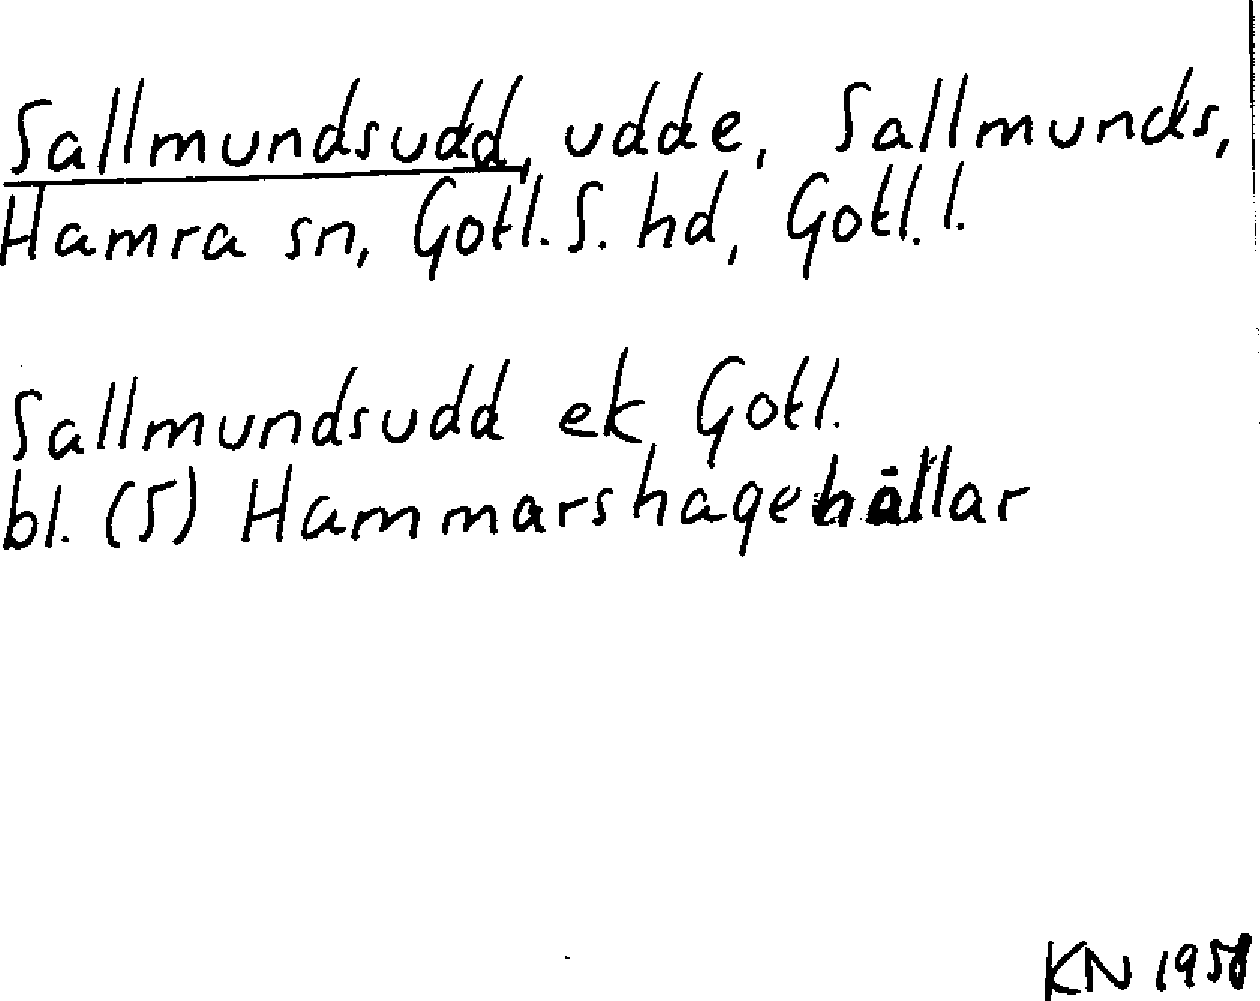 Sallmundsudd, udde, Sallmunds,
Hamra sn, Gotl. S. hd, Gotl. l.
Sallmundsudd ek Gotl.
bl. (5) Hammarshagehällar
KN 1958